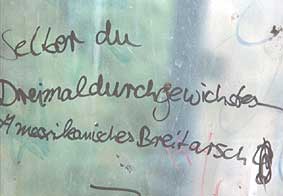 Selber du
Dreimaldurchgewichstes
Amerikanisches Breitarsch